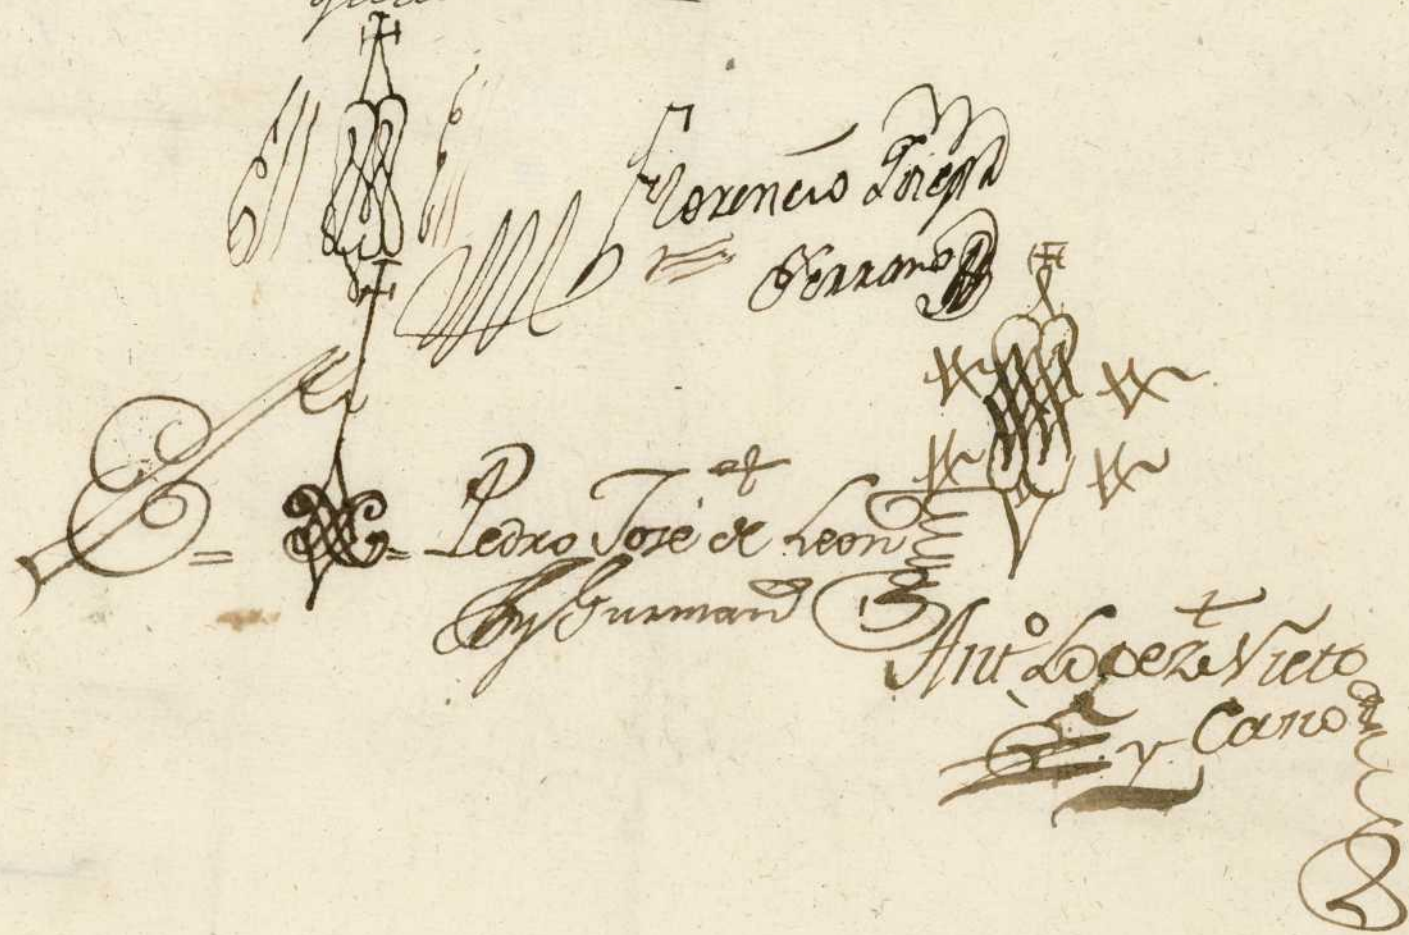 Florencio Joseph
Serrano
Pedro José de Leon
y Gusman
Ant.º Lopez Nieto
y Cano